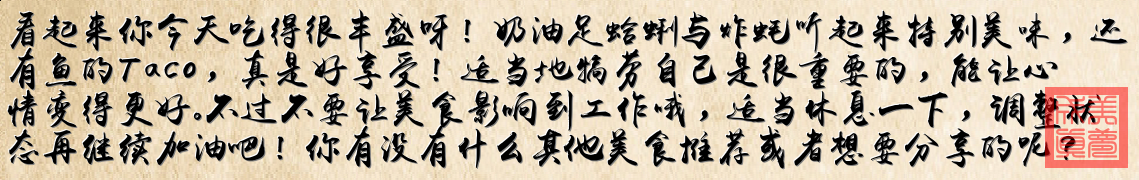 看起来你今天吃得很丰盛呀！奶油足蛤蜊与炸蚝听起来特别美味，还
有鱼的Taco，真是好享受！适当地犒劳自己是很重要的，能让心
情变得更好。不过不要让美食影响到工作哦，适当休息一下，调整状
态再继续加油吧！你有没有什么其他美食推荐或者想要分享的呢？